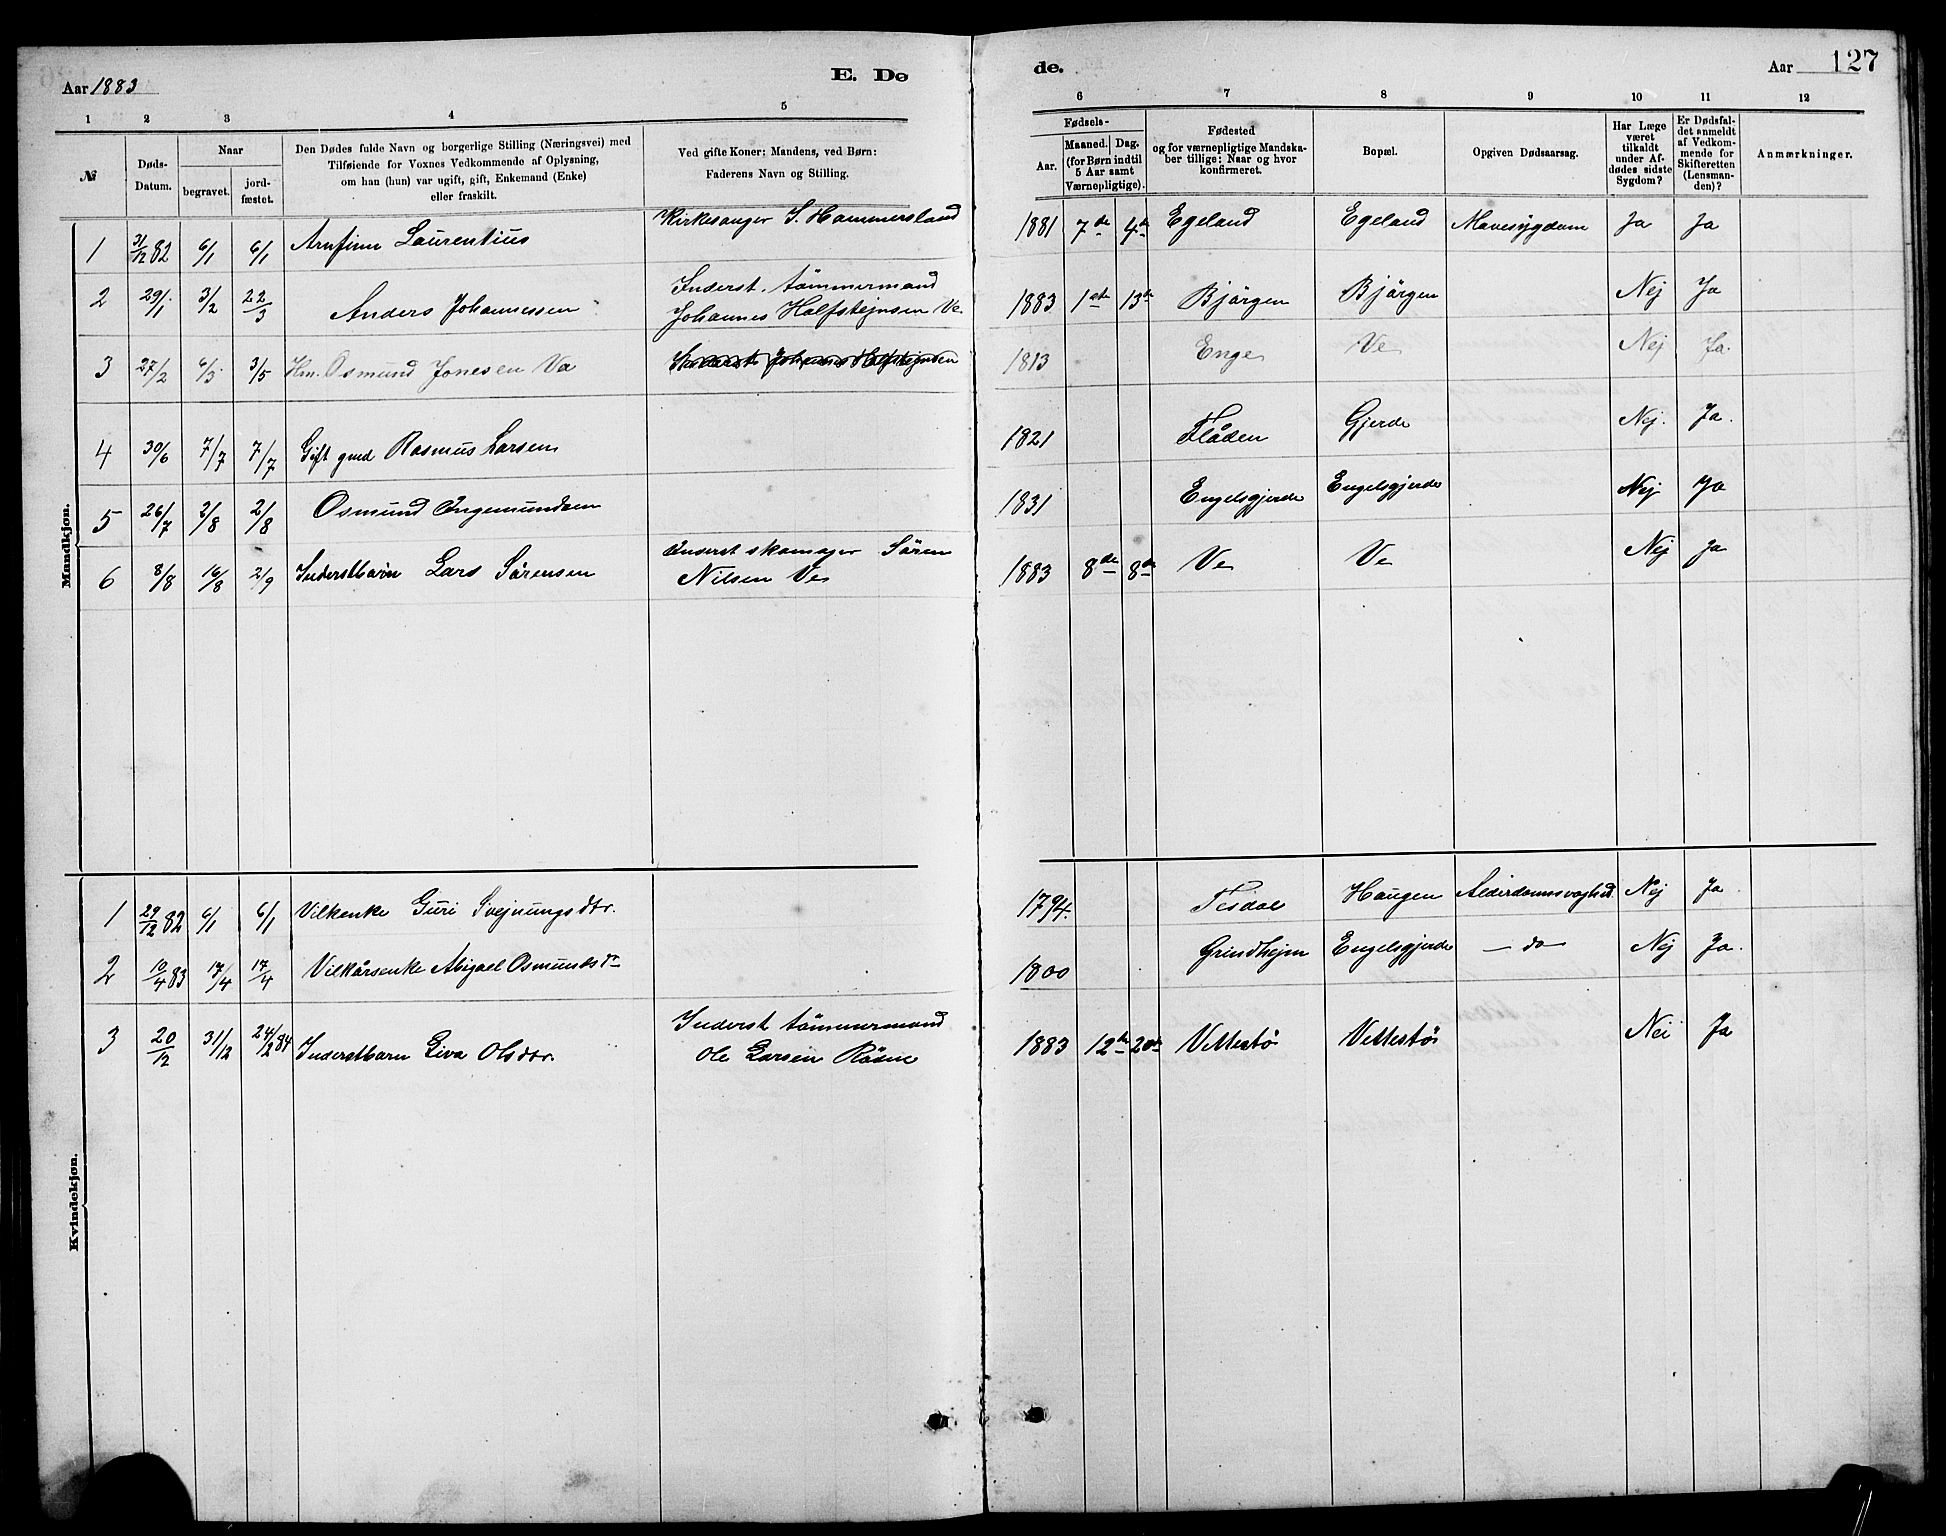 Aar 1883
E. Dø
de.
Aar
127
1 2 3 4 5 6 7 8 9 10 11 12
№
Døds-
Datum.
Naar
begravet.
jord-
fæstet.
Den Dødes fulde Navn og borgerlige Stilling (Næringsvei) med
Tilføiende for Voxnes Vedkommende af Oplysning,
om han (hun) var ugift, gift, Enkemand (Enke)
eller fraskilt.
Ved gifte Koner: Mandens, ved Børn:
Faderens Navn og Stilling.
Fødsels-
Aar.
Maaned. Dag.
(for Børn indtil
5 Aar samt
Værnepligtige).
Fødested
og for værnepligtige Mandska-
ber tillige: Naar og hvor
konfirmeret.
Bopæl.
Opgiven Dødsaarsag.
Har Læge
været
tilkaldt
under Af-
dødes sidste
Sygdom?
Er Dødsfal-
det anmeldt
af Vedkom-
mende for
Skifteretten
(Lensman-
den)?
Anmærkninger.
Mandkjøn.
1 31/12 82 6/1 6/1 Arnfinn Laurentius Kirkesanger S. Hammersland 1881 7de 4de Egeland Egeland Mavesygdom Ja Ja
2 29/1 3/2 22/3 Anders Johannessen Inderst. tömmermand
Johannes Halfstejnsen Ve. 1883 1ste 13de Björgen Björgen Nej Ja
3 27/2 6/3 3/5 Hm. Osmund Jonesen Ve Inderst Johannes Halfstejnsen 1813 Enge Ve Nej Ja.
4 30/6 7/7 7/7 Gift gmd Rasmus Larsen 1821 Flåden Gjerde Nej. Ja.
5 26/7 2/8 2/8 Osmund Ingemundsen 1831 Engelsgjerde Engelsgjerde Nej Ja
6 8/8 16/8 2/9 Inderstbarn Lars Sörensen Inderst skomager Sören
Nilsen Ve 1883 8de 8de Ve Ve Nej Ja
Kvindekjøn.
1 29/12 82 6/1 6/1 Vilkenke Guri Svejnungsdtr. 1794. Tisdal Haugen Alderdomssvaghed. Nej Ja.
2 10/4 83 17/4 17/4 Vilkårsenke Abigael Osmundsdr 1800 Grindhejm Engelsgjerde — do — Nej Ja.
3 20/12 31/12 24/2 84 Inderstbarn Liva Olsdtr. Inderst tömmermand
Ole Larsen Röine 1883 12te 20de Vettestö Vettestö Nei Ja